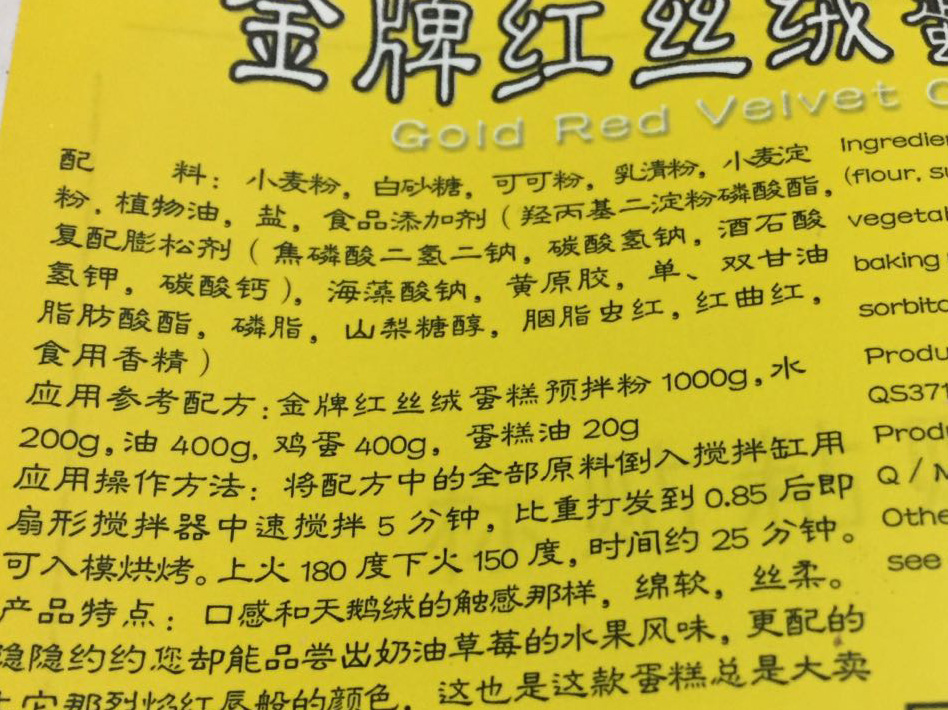 金牌红丝绒蛋
Gold Red Velvet C
配 料：小麦粉，白砂糖，可可粉，乳清粉，小麦淀
粉，植物油，盐，食品添加剂（羟丙基二淀粉磷酸酯，
复配膨松剂（焦磷酸二氢二钠，碳酸氢钠，酒石酸
氢钾，碳酸钙），海藻酸钠，黄原胶，单、双甘油
脂肪酸酯，磷脂，山梨糖醇，胭脂虫红，红曲红，
食用香精）
应用参考配方：金牌红丝绒蛋糕预拌粉 1000g，水
200g，油 400g，鸡蛋 400g， 蛋糕油 20g
应用操作方法：将配方中的全部原料倒入搅拌缸用
扇形搅拌器中速搅拌 5 分钟，比重打发到 0.85 后即
可入模烘烤。上火 180 度下火 150 度，时间约 25 分钟。
产品特点：口感和天鹅绒的触感那样，绵软，丝柔。
隐隐约约您却能品尝出奶油草莓的水果风味，更配的
上它那烈焰红唇般的颜色，这也是这款蛋糕总是大卖
Ingredie
(flour, su
vegetal
baking
sorbito
Produ
QS371
Prod
Q / 
Othe
see